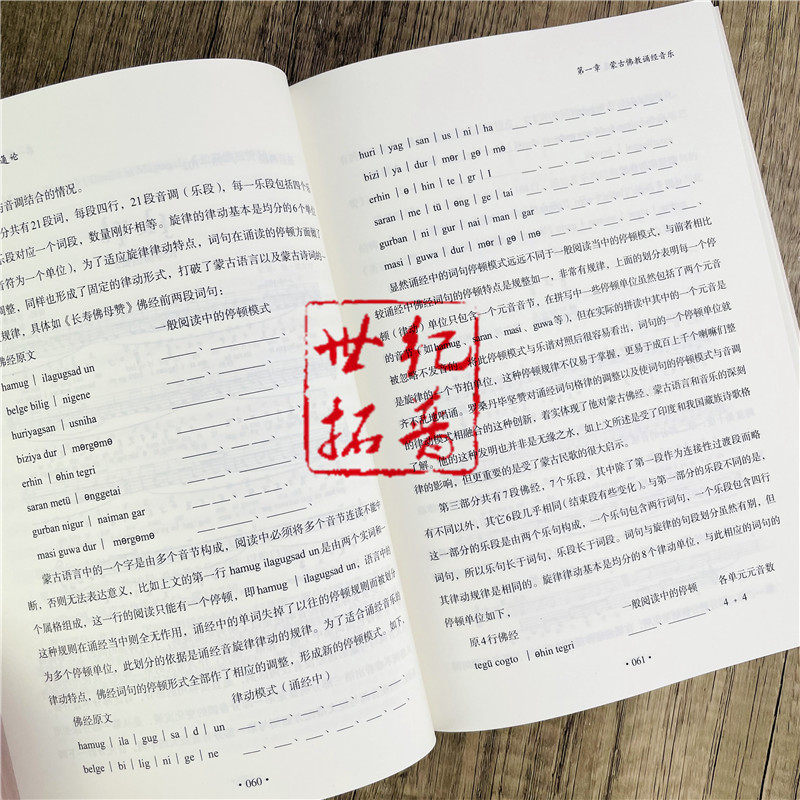 通论
与音调结合的情况。
分共有21段词，每段四行，21段音调（乐段），每一乐段包括四个乐
乐段对应一个词段，数量刚好相等。旋律的律动基本是均分的6个单位
音符为一个单位），为了适应旋律律动特点，词句在诵读的停顿方面做了
调整，同样也形成了固定的律动形式，打破了蒙古语言以及蒙古诗词的一
规律，具体如《长寿佛母赞》佛经前两段词句：
佛经原文 一般阅读中的停顿模式
hamug | ilagugsad un
belge bilig | nigene
huriyagsan | usniha
biziya dur | mɵrgɵmɵ
erhin | ɵhin tegri
saran metü | ɵnggetai
gurban nigur | naiman gar
masi guwa dur | mɵrgɵmɵ
蒙古语言中的一个字是由多个音节构成，阅读中必须将多个音节连读不能中
断，否则无法表达意义，比如上文的第一行 hamug ilagugsad un是由两个实词和一
个属格组成，这一行的阅读只能有一个停顿，即hamug | ilagugsad un，语言中的
这种规则在诵经当中则全无作用，诵经中的单词失掉了以往的停顿规则而被划分
为多个停顿单位，此划分的依据是诵经音旋律律动的规律。为了适合诵经音乐的
律动特点，佛经词句的停顿形式全部作了相应的调整，形成新的停顿模式。如下，
佛经原文 律动模式（诵经中）
hamug | ila | gug | sa | d | un
belge | bi | lig | ni | ge | ne
·060·
第一章 蒙古佛教诵经音乐
huri | yag | san | us | ni | ha
bizi | ya | dur | mɵr | gɵ | mɵ
erhin | ɵ | hin | te | gr | I
saran | me | tü | ɵng | ge | tai
gurban | ni | gur | nai | man | gar
masi | guwa | dur | mɵr | gɵ | mɵ
显然诵经中的词句停顿模式远远不同于一般阅读当中的停顿模式，与前者相比
较诵经中佛经词句的停顿特点是规整如一，非常有规律，上面的划分表明每一个停
顿（律动）单位只包含一个元音音节，在拼写中一些停顿单位虽然包括了两个元音
的音节（如hamug、saran、masi、guwa等），但在实际的拼读中其中的一个元音是
被忽略不发音的，将此停顿模式与乐谱对照后很容易看出，词句的一个停顿单位就
是旋律的一个节拍单位，这种停顿规律不仅易于掌握，更易于成百上千个喇嘛们整
齐不乱地唱诵。罗桑丹毕坚赞对诵经词句格律的调整以及使词句的停顿模式与音调
的律动模式相融合的这种创新，着实体现了他对蒙古佛经、蒙古语言和音乐的深刻
了解。他的这种发明也并非是无缘之水，如上文所述是受了印度和我国藏族诗歌格
律的影响，但更重要的是受了蒙古民歌的很大启示。
第三部分共有7段佛经，7个乐段，其中除了第一段作为连接性过渡段而略
有不同以外，其它6段几乎相同（结束段有些变化）。与第一部分的乐段不同的是，
这一部分的乐段是由两个乐句构成，一个乐句包含两行词句，一个乐段包含四行
词句，所以乐句长于词句，乐段长于词段。词句与旋律的句段划分虽然有别，但
其律动规律是相同的。旋律律动基本是均分的8个律动单位，与此相应的词句的
停顿单位如下，
原4行佛经 一般阅读中的停顿 各单元元音数
tegü cogto | ɵhin tegri 4，4
·061·
世纪
拓普